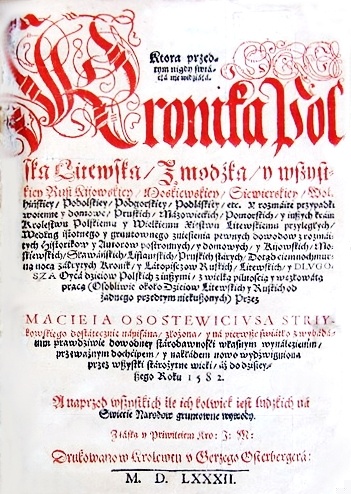 Ktora przed-
tym nigdy świá-
tłá nie widziáłá.
Kronika Pol
ska Litewska/ Zmodźka/ y wszystkiey
Rusi Kijowskiey/ Moskiewskiey/ Siewierskiey/ Woł-
hińskiey/ Podolskiey/ Podgorskiey/ Podláskiey/ etc. Y rozmáite przypadki
woienne y domowe/ Pruskich/ Mázowieckich/ Pomorskich/ y inszych kráin
Krolestwu Polskiemu y Wielkiemu Xięstwu Litewskiemu przyległych/
Według istotnego y gruntownego zniesienia pewnych dowodow z rozmái-
tych Historikow y Autorow postronnych/ y domowych/ y Kijowskich/ Mo-
skiewskich/ Sławáńskich/ Liflandskich/ Pruskich stárych/ Dotąd ciemnochmur-
ną nocą zákrytych Kronik/ y Látopiszcow Ruskich/ Litewskich/ y DLVGO-
SZA Oycá dzieiow Polskich z inszymi/ z wielką pilnością y
pracą (Osobliwie około Dzieiow Litewskich y Ruskich od
żadnego przedtym niekuszonych) Przez
MACIEIA OSOSTEWICIVSA STRIY-
kowskiego dostátecznie nápisána/ złożona/ y ná pierwsze świátło z
nim prawdziwie dowodney stárodawności własnym wynálezieniem/
przeważnym dochćipem/ y nakłádem nowo wydźwigniona
przez wszystki stárożytne wieki/ áż do dzisiey-
szego Roku 1582.
A naprzod wszystkich ile ich kolwiek iest ludzkich ná
Swiecie Narodow gruntowne wywody.
Z łáską y Priwileiem Kro: J: M:
Drukowano w Krolewcu v Gerzego Osterbergerá:
M. D. LXXXII.